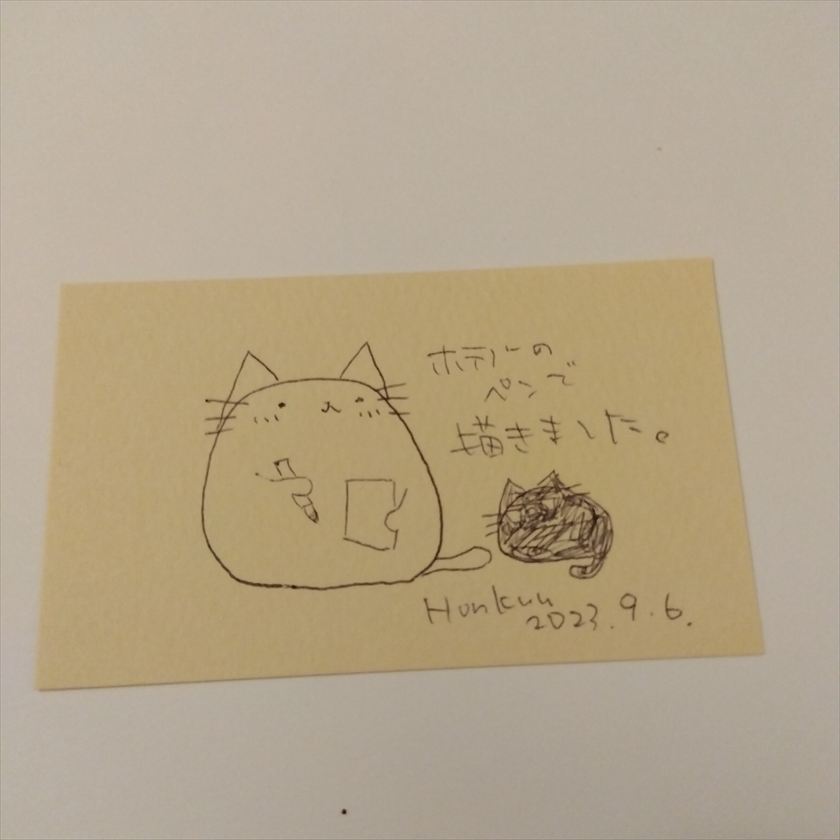 ホテルの
ペンで
描きました。
Honkuu
2023.9.6.